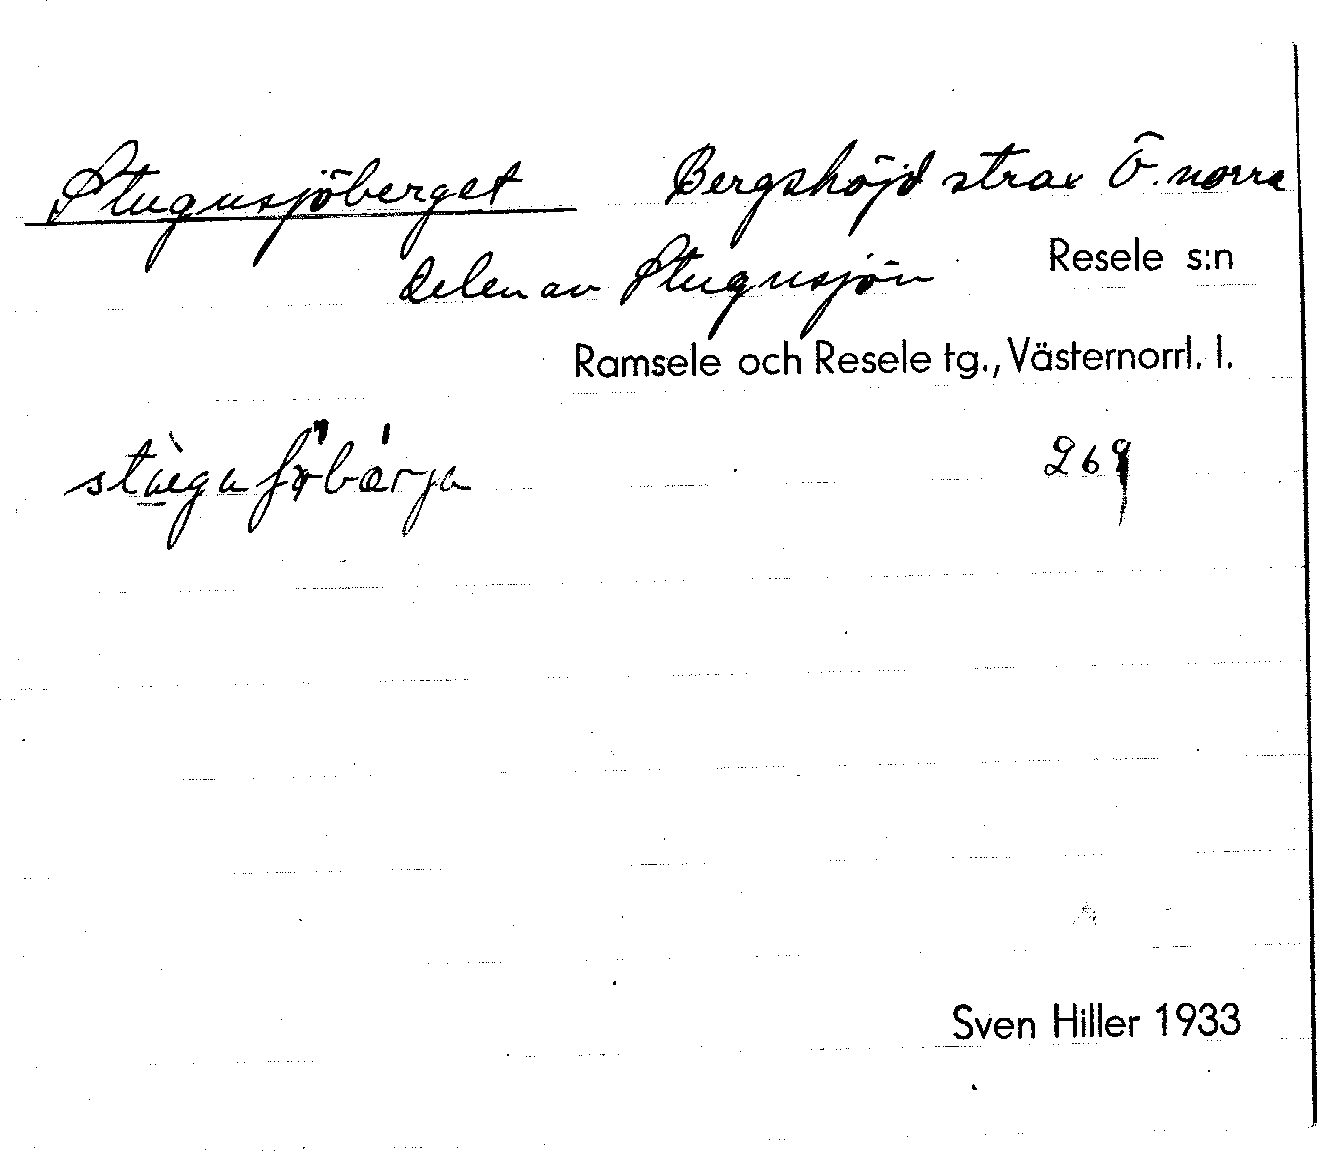 Stugusjöberget Bergshöjd strax Ö. norra
delen av Stugusjön
Resele s:n
Ramsele och Resele tg., Västernorrl. l.
269
Sven Hiller 1933